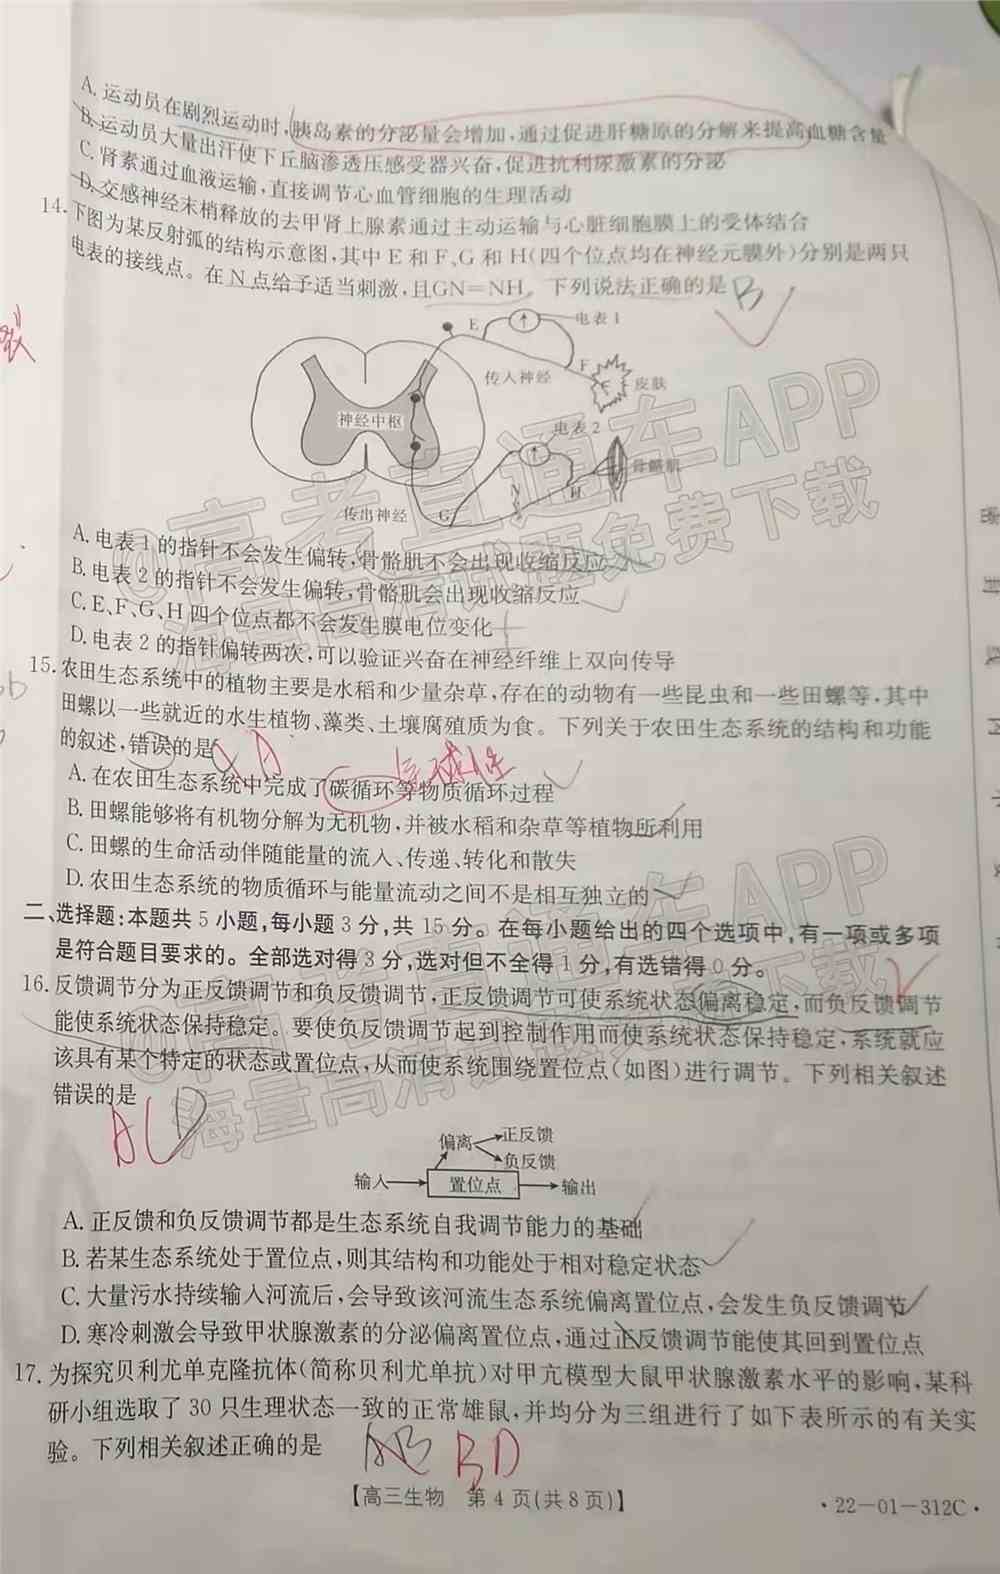 A. 运动员在剧烈运动时,胰岛素的分泌量会增加,通过促进肝糖原的分解来提高血糖含量
B. 运动员大量出汗使下丘脑渗透压感受器兴奋,促进抗利尿激素的分泌
C. 肾素通过血液运输,直接调节心血管细胞的生理活动
D. 交感神经末梢释放的去甲肾上腺素通过主动运输与心脏细胞膜上的受体结合
14. 下图为某反射弧的结构示意图,其中 E 和 F、G 和 H(四个位点均在神经元膜外)分别是两只
电表的接线点。在 N 点给予适当刺激,且GN=NH。下列说法正确的是 B
电表 1
E
F
传入神经
皮肤
神经中枢
电表 2
骨骼肌
N
H
G
传出神经
A. 电表 1 的指针不会发生偏转,骨骼肌不会出现收缩反应
B. 电表 2 的指针不会发生偏转,骨骼肌会出现收缩反应
C. E、F、G、H 四个位点都不会发生膜电位变化
D. 电表 2 的指针偏转两次,可以验证兴奋在神经纤维上双向传导
15. 农田生态系统中的植物主要是水稻和少量杂草,存在的动物有一些昆虫和一些田螺等,其中
田螺以一些就近的水生植物、藻类、土壤腐殖质为食。下列关于农田生态系统的结构和功能
的叙述,错误的是 A
全球性
A. 在农田生态系统中完成了碳循环等物质循环过程
B. 田螺能够将有机物分解为无机物,并被水稻和杂草等植物所利用
C. 田螺的生命活动伴随能量的流入、传递、转化和散失
D. 农田生态系统的物质循环与能量流动之间不是相互独立的
二、选择题:本题共 5 小题,每小题 3 分,共 15 分。在每小题给出的四个选项中,有一项或多项
是符合题目要求的。全部选对得 3 分,选对但不全得 1 分,有选错得 0 分。
16. 反馈调节分为正反馈调节和负反馈调节,正反馈调节可使系统状态偏离稳定,而负反馈调节
能使系统状态保持稳定。要使负反馈调节起到控制作用而使系统状态保持稳定,系统就应
该具有某个特定的状态或置位点,从而使系统围绕置位点(如图)进行调节。下列相关叙述
错误的是
ACD
偏离
正反馈
负反馈
输入
置位点
输出
A. 正反馈和负反馈调节都是生态系统自我调节能力的基础
B. 若某生态系统处于置位点,则其结构和功能处于相对稳定状态
C. 大量污水持续输入河流后,会导致该河流生态系统偏离置位点,会发生负反馈调节
D. 寒冷刺激会导致甲状腺激素的分泌偏离置位点,通过正反馈调节能使其回到置位点
17. 为探究贝利尤单克隆抗体(简称贝利尤单抗)对甲亢模型大鼠甲状腺激素水平的影响,某科
研小组选取了 30 只生理状态一致的正常雄鼠,并均分为三组进行了如下表所示的有关实
验。下列相关叙述正确的是 AB BD
【高三生物 第 4 页(共 8 页)】
·22-01-312C·
@高考直通车APP
海量高清试题免费下载
@高考直通车APP
海量高清试题免费下载